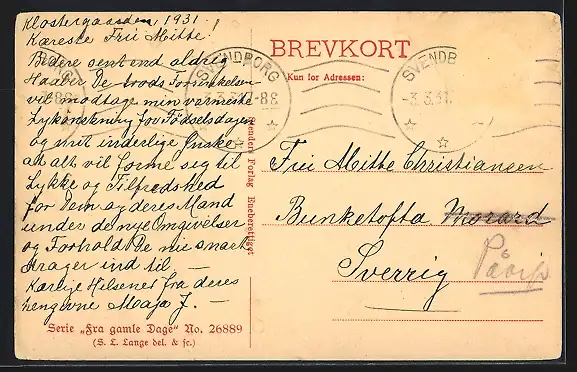 Klostergaarden, 1931.
Kæreste Frü Mitte!
Bedere sent end aldrig
Haaber De trods Forsinkelsen
vil modtage min varmeste
Lykønskning for Fødselsdagen
og mit inderlige Ønske
at alt vil forme seg til
Lykke og Tilfredshed
for Dem og deres Mand
under de nye Omgivelser
og Forhold De nu snart
drager ind til —
Kærlige Hilsener fra deres
hengivne Maja J. —
Serie „Fra gamle Dage" No. 26889
(S. L. Lange del. & sc.)
Stenders Forlag Eneberettiget
SVENDBORG
3.3.31.7-8
BREVKORT
Kun for Adressen:
SVENDB
-3.3.31.
Frü Mitte Christiansen
Bunketofta
Sverrig